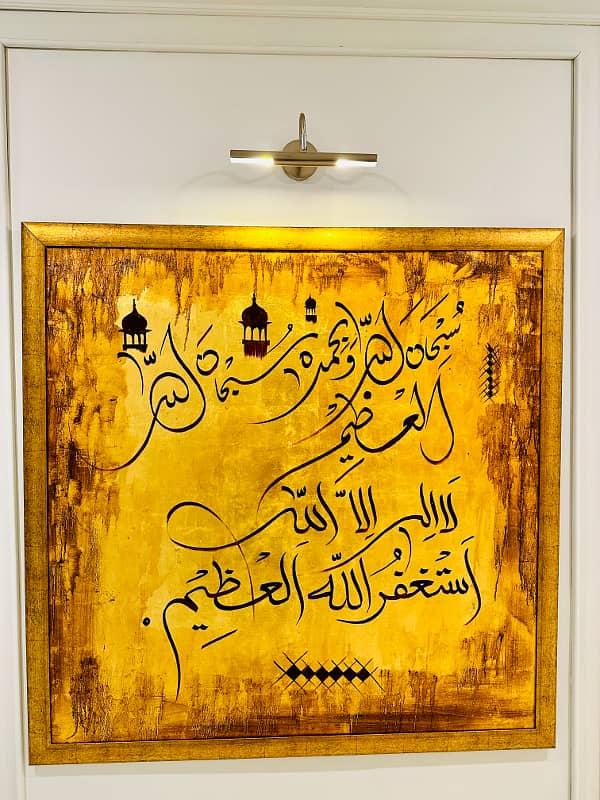 سُبْحَانَ اللّٰه وَبِحَمْدِهِ سُبْحَانَ اللّٰه
العَظِيْم
لَا اِلٰهَ اِلَّا اللّٰه
اَسْتَغْفُرُ اللّٰه العَظِيْم